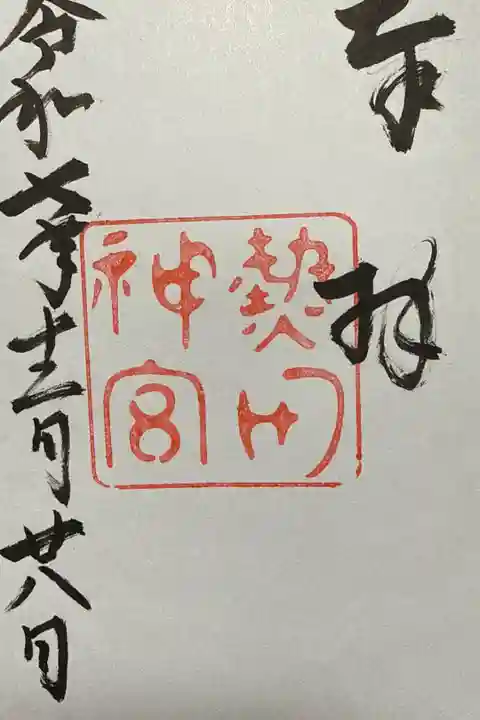 奉拝
熱田神宮
令和七年十二月廿八日